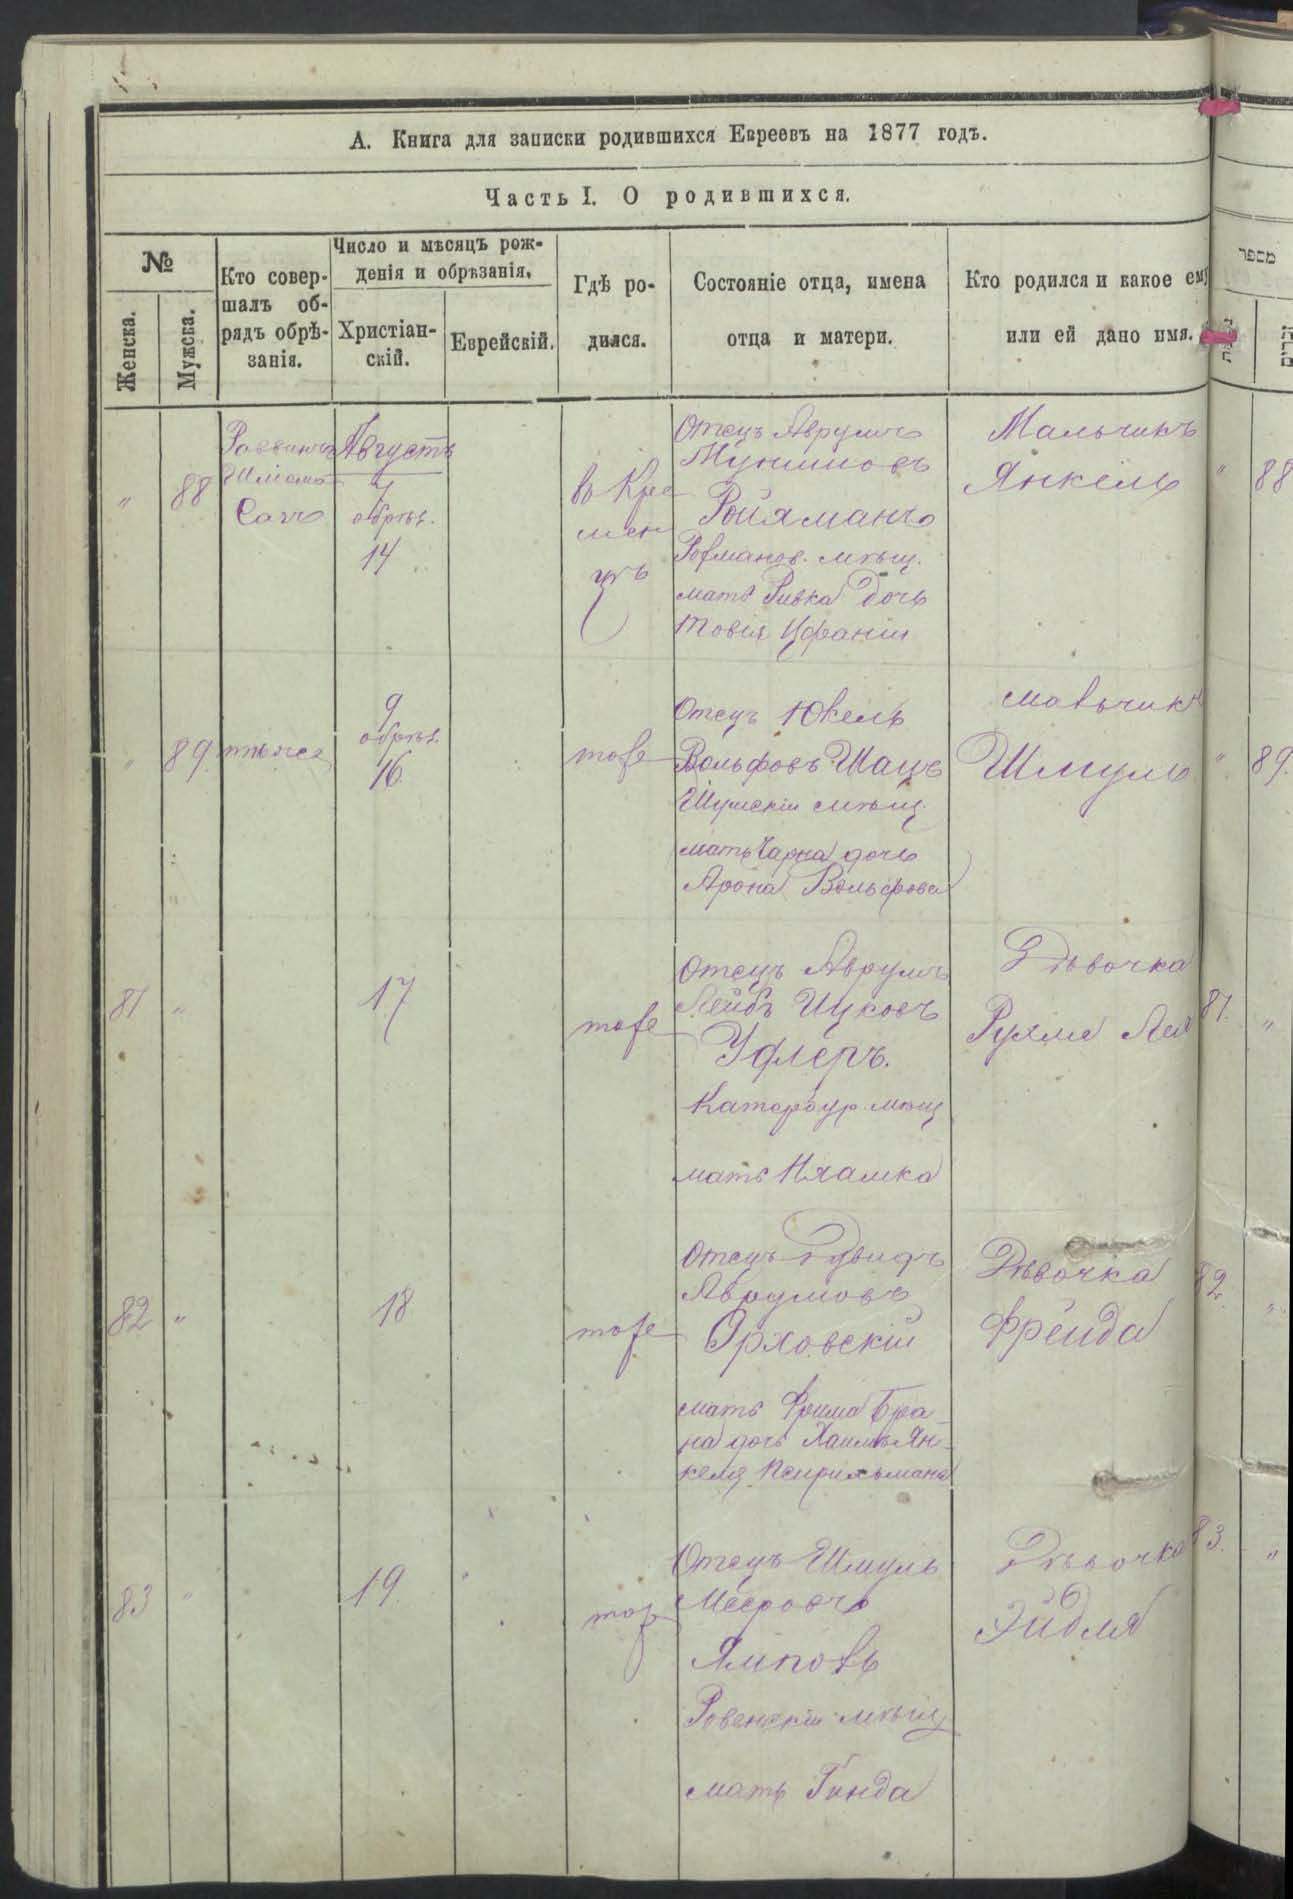 А. Книга для записки родившихся Евреевъ на 1877 годъ.
Часть I. О родившихся.
№
Женска.
Мужска.
Кто совер-
шалъ об-
рядъ обрѣ-
занія.
Число и мѣсяцъ рож-
денія и обрѣзанія.
Христіан-
скій.
Еврейскій.
Гдѣ ро-
дился.
Состояніе отца, имена
отца и матери.
Кто родился и какое ему
или ей дано имя.
מספר
"
88
Раввинъ
Августъ
7
обрѣз.
14
в Кре
мен
цѣ
Отецъ Аврумъ
Ройхманъ
мѣщ.
мать Ривка дочь
Товія
Мальчикъ
Янкель
"
88
"
89
тоже
9
обрѣз.
16
тоже
Отецъ Юкель
Вольфовъ Шацъ
Шумскій мѣщ.
мать Чарна дочь
Арона Вольфова
мальчикъ
Шмуль
"
89.
81
"
17
тоже
Отецъ Аврумъ
Лейбъ Ицковъ
Уфлеръ.
Катербур. мѣщ
мать Нхамка
Дѣвочка
Рухля Лея
81.
"
82
"
18
тоже
Отецъ Дувидъ
Аврумовъ
Орховскій
мать Фрима Бра
на дочь Хаимъ Ян-
келя
Дѣвочка
Фрейда
82.
"
83
"
19.
тоже
Отецъ Шмуль
Мееровъ
Ровенскій мѣщ
мать Гинда
Дѣвочка
Эйдля
83.
"